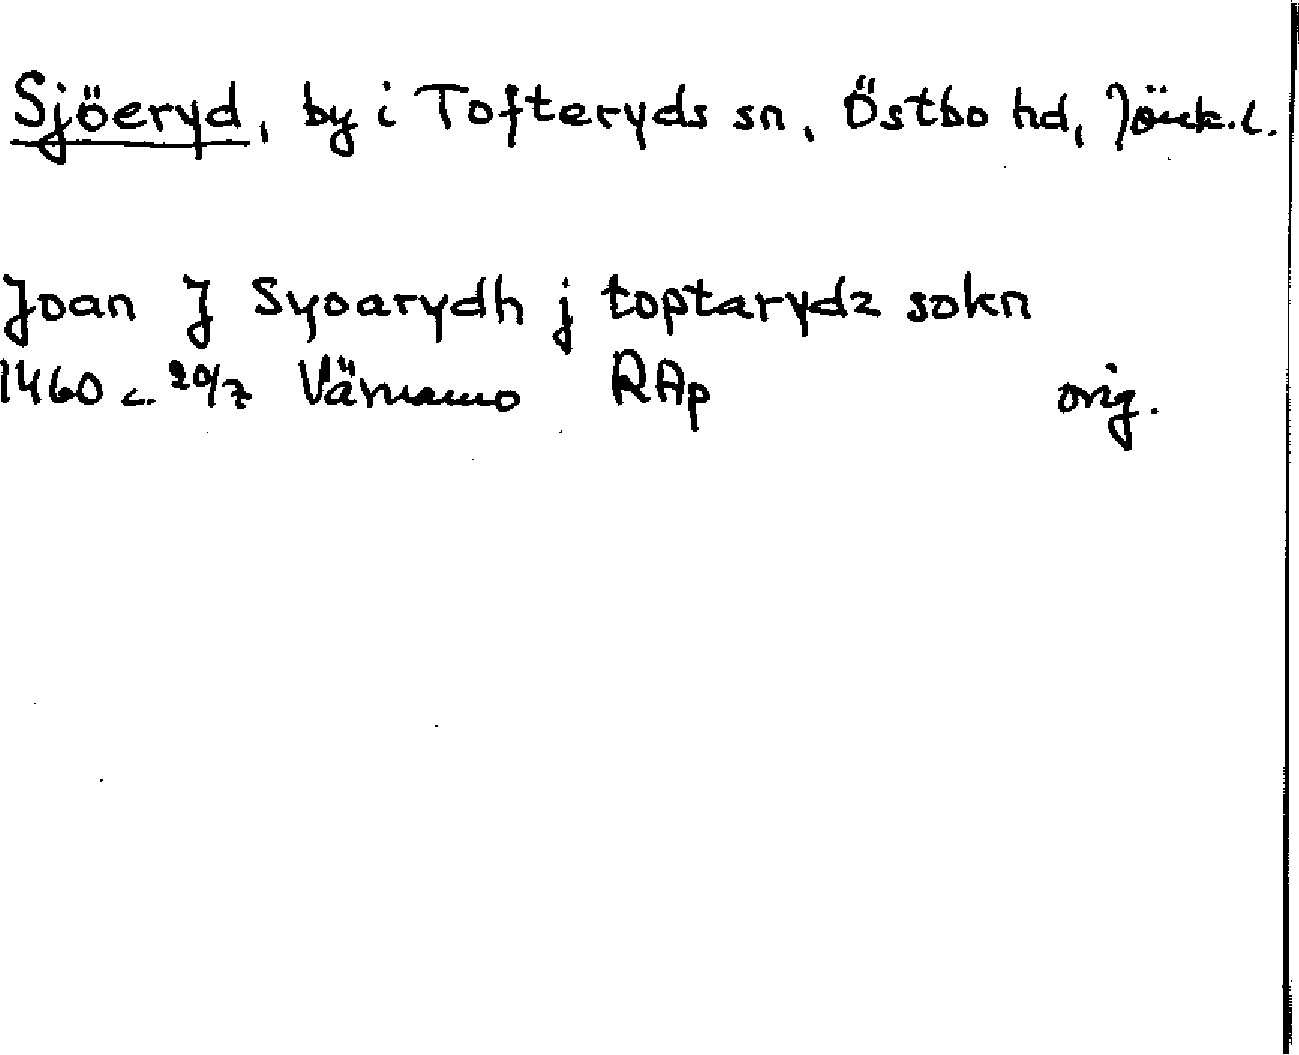 Sjöeryd, by i Tofteryds sn, Östbo hd, Jönk.l.
Joan J Syoarydh j toptarydz sokn
1460 c. 20/7 Värnamo RAp orig.